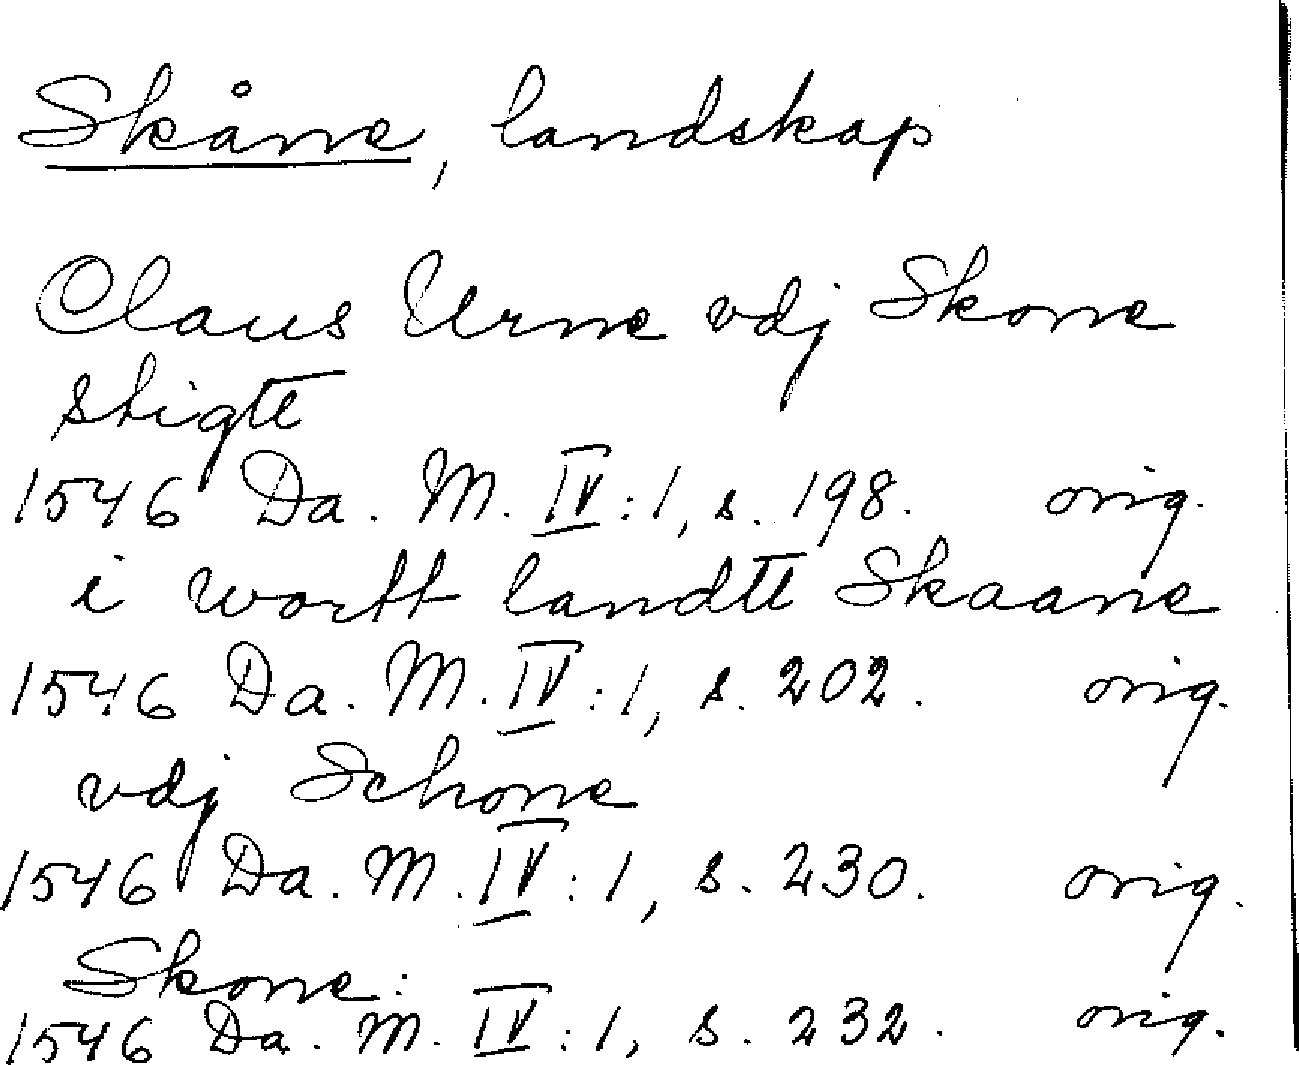 Skåne, landskap
Claus Urne vdj Skone
stigtt
1546 Da. M. IV:1, s. 198. orig.
i wortt landtt Skaane
1546 Da. M. IV:1, s. 202. orig.
vdj Schone
1546 Da. M. IV:1, s. 230. orig.
Skone:
1546 Da. M. IV:1, s. 232. orig.